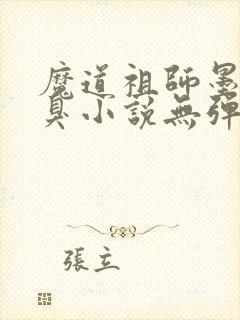 魔道祖師墨
臭小說無彈
張立